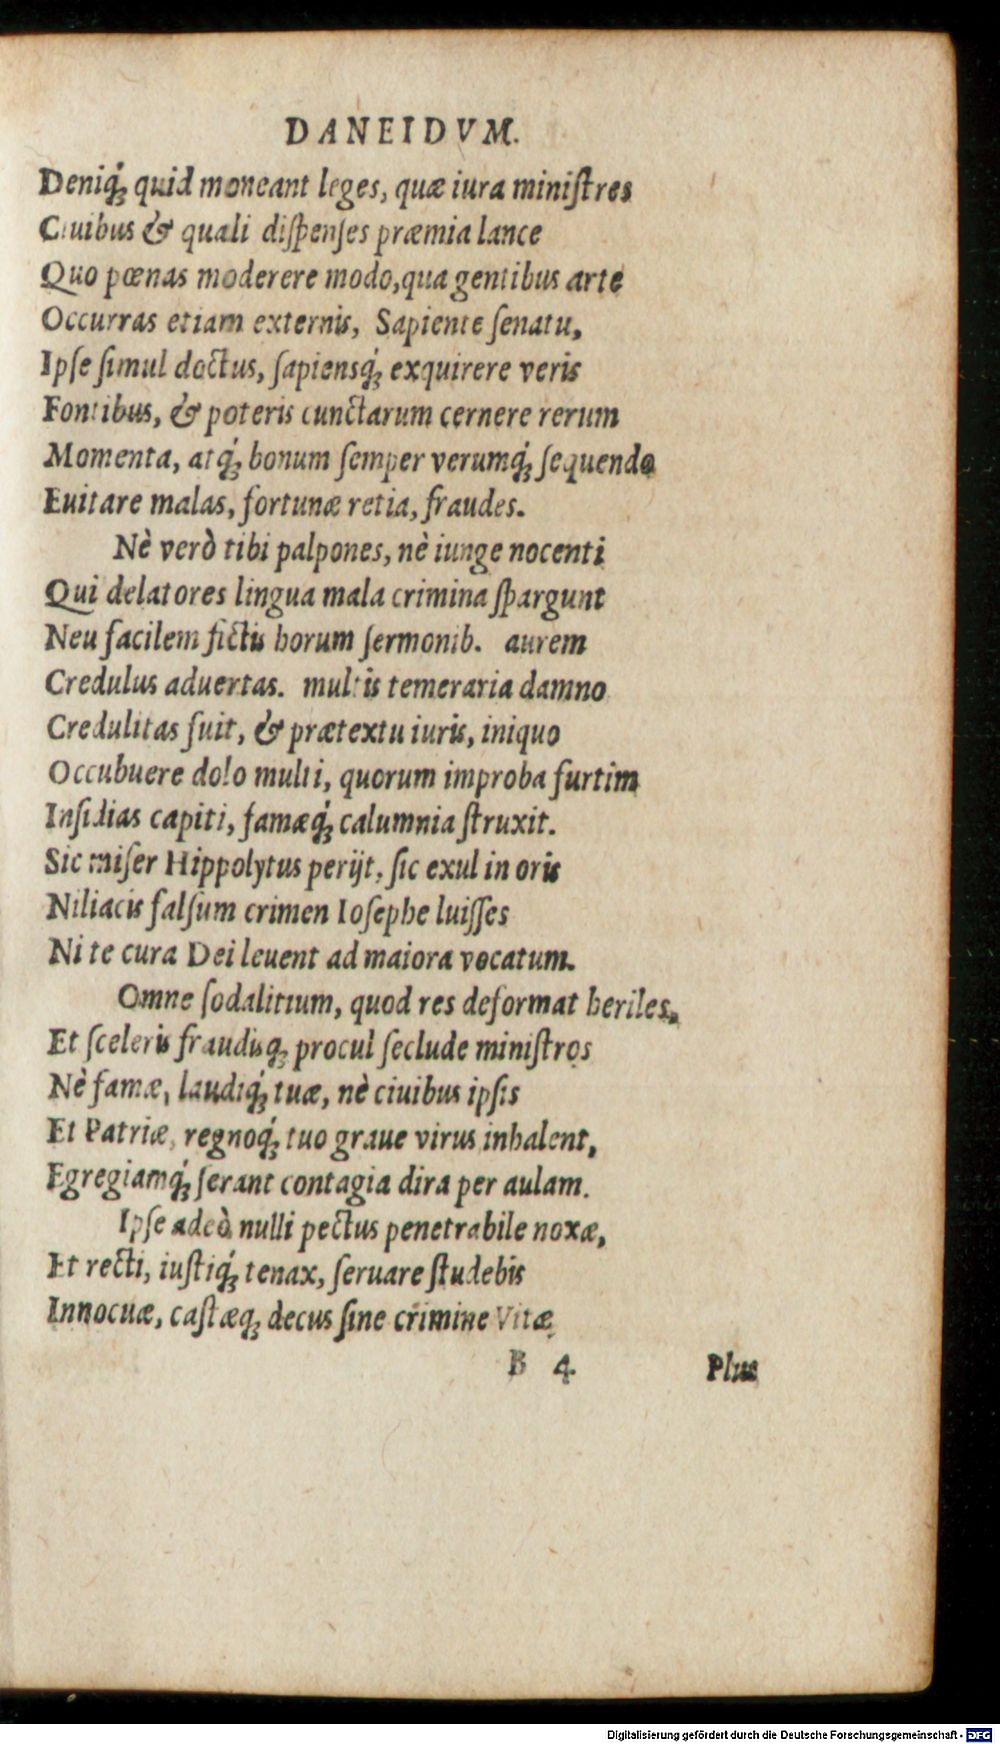 DANEIDVM.
Deniq́; quid moneant leges, quæ iura miniſtres
Ciuibus & quali diſpenſes præmia lance
Quo pœnas moderere modo, qua gentibus arte
Occurras etiam externis, Sapiente ſenatu,
Ipſe ſimul doctus, ſapiensq́; exquirere veris
Fontibus, & poteris cunctarum cernere rerum
Momenta, atq́; bonum ſemper verumq́; ſequendo
Euitare malas, fortunæ retia, fraudes.
Nè verò tibi palpones, nè iunge nocenti
Qui delatores lingua mala crimina ſpargunt
Neu facilem fictis horum ſermonib. aurem
Credulus aduertas. multis temeraria damno
Credulitas fuit, & prætextu iuris, iniquo
Occubuere dolo multi, quorum improba furtim
Inſidias capiti, famæq́; calumnia ſtruxit.
Sic miſer Hippolytus perijt, ſic exul in oris
Niliacis falſum crimen Ioſephe luiſſes
Ni te cura Dei leuent ad maiora vocatum.
Omne ſodalitium, quod res deformat heriles,
Et ſceleris fraudisq; procul ſeclude miniſtros
Nè famæ, laudiq́; tuæ, nè ciuibus ipſis
Et Patriæ, regnoq́; tuo graue virus inhalent,
Egregiamq́; ferant contagia dira per aulam.
Ipſe adeò nulli pectus penetrabile noxæ,
Et recti, iuſtiq́; tenax, ſeruare ſtudebis
Innocuæ, caſtæq; decus ſine crimine Vitæ
B 4 Plus
Digitalisierung gefördert durch die Deutsche Forschungsgemeinschaft - DFG